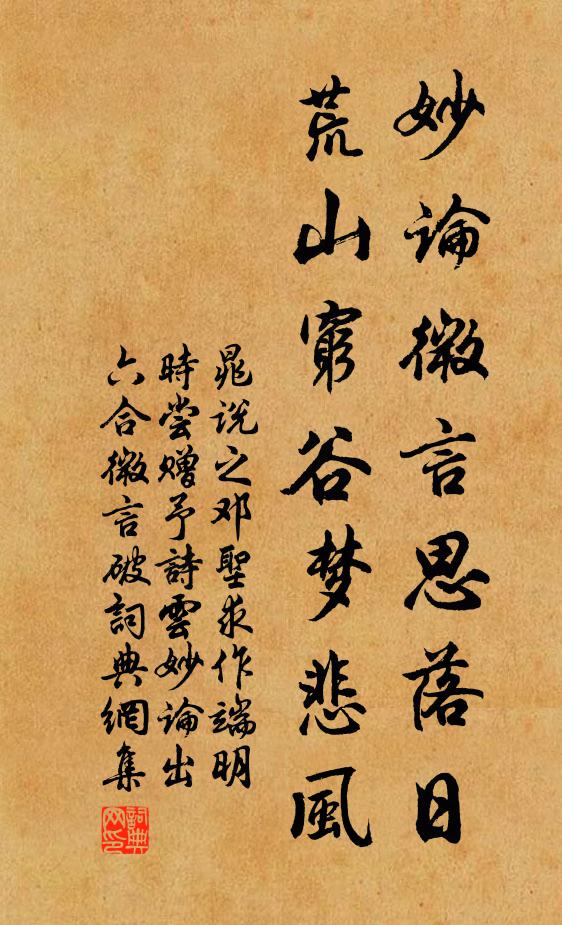 妙論微言思落日
荒山窮谷梦悲風
晁说之邓聖求作端明
時尝赠予詩雲妙論出
六合微言破詞典網集
詞典网印